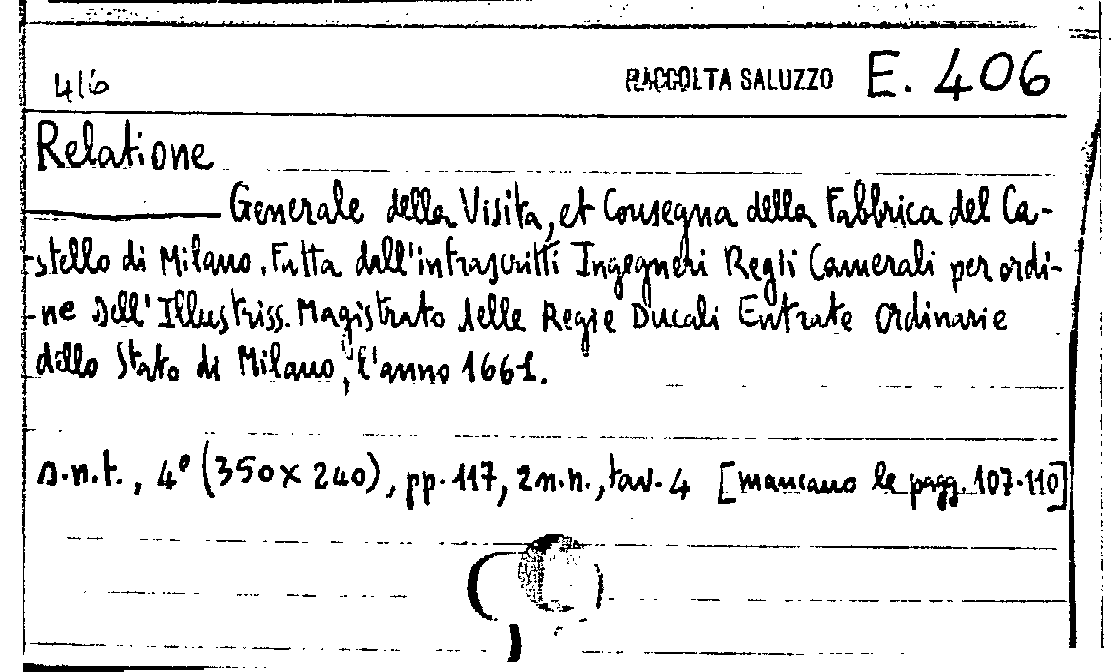 4/6 RACCOLTA SALUZZO E. 406
Relatione
Generale della Visita, et Consegna della Fabbrica del Ca-
-stello di Milano. Fatta dall'infrascritti Ingegneri Regii Camerali per ordi-
-ne dell'Illustriss. Magistrato delle Regie Ducali Entrate Ordinarie
dello Stato di Milano, l'anno 1661.
s.n.t., 4° (350x240), pp. 117, 2 n.n., tav. 4 [mancano le pagg. 107-110]